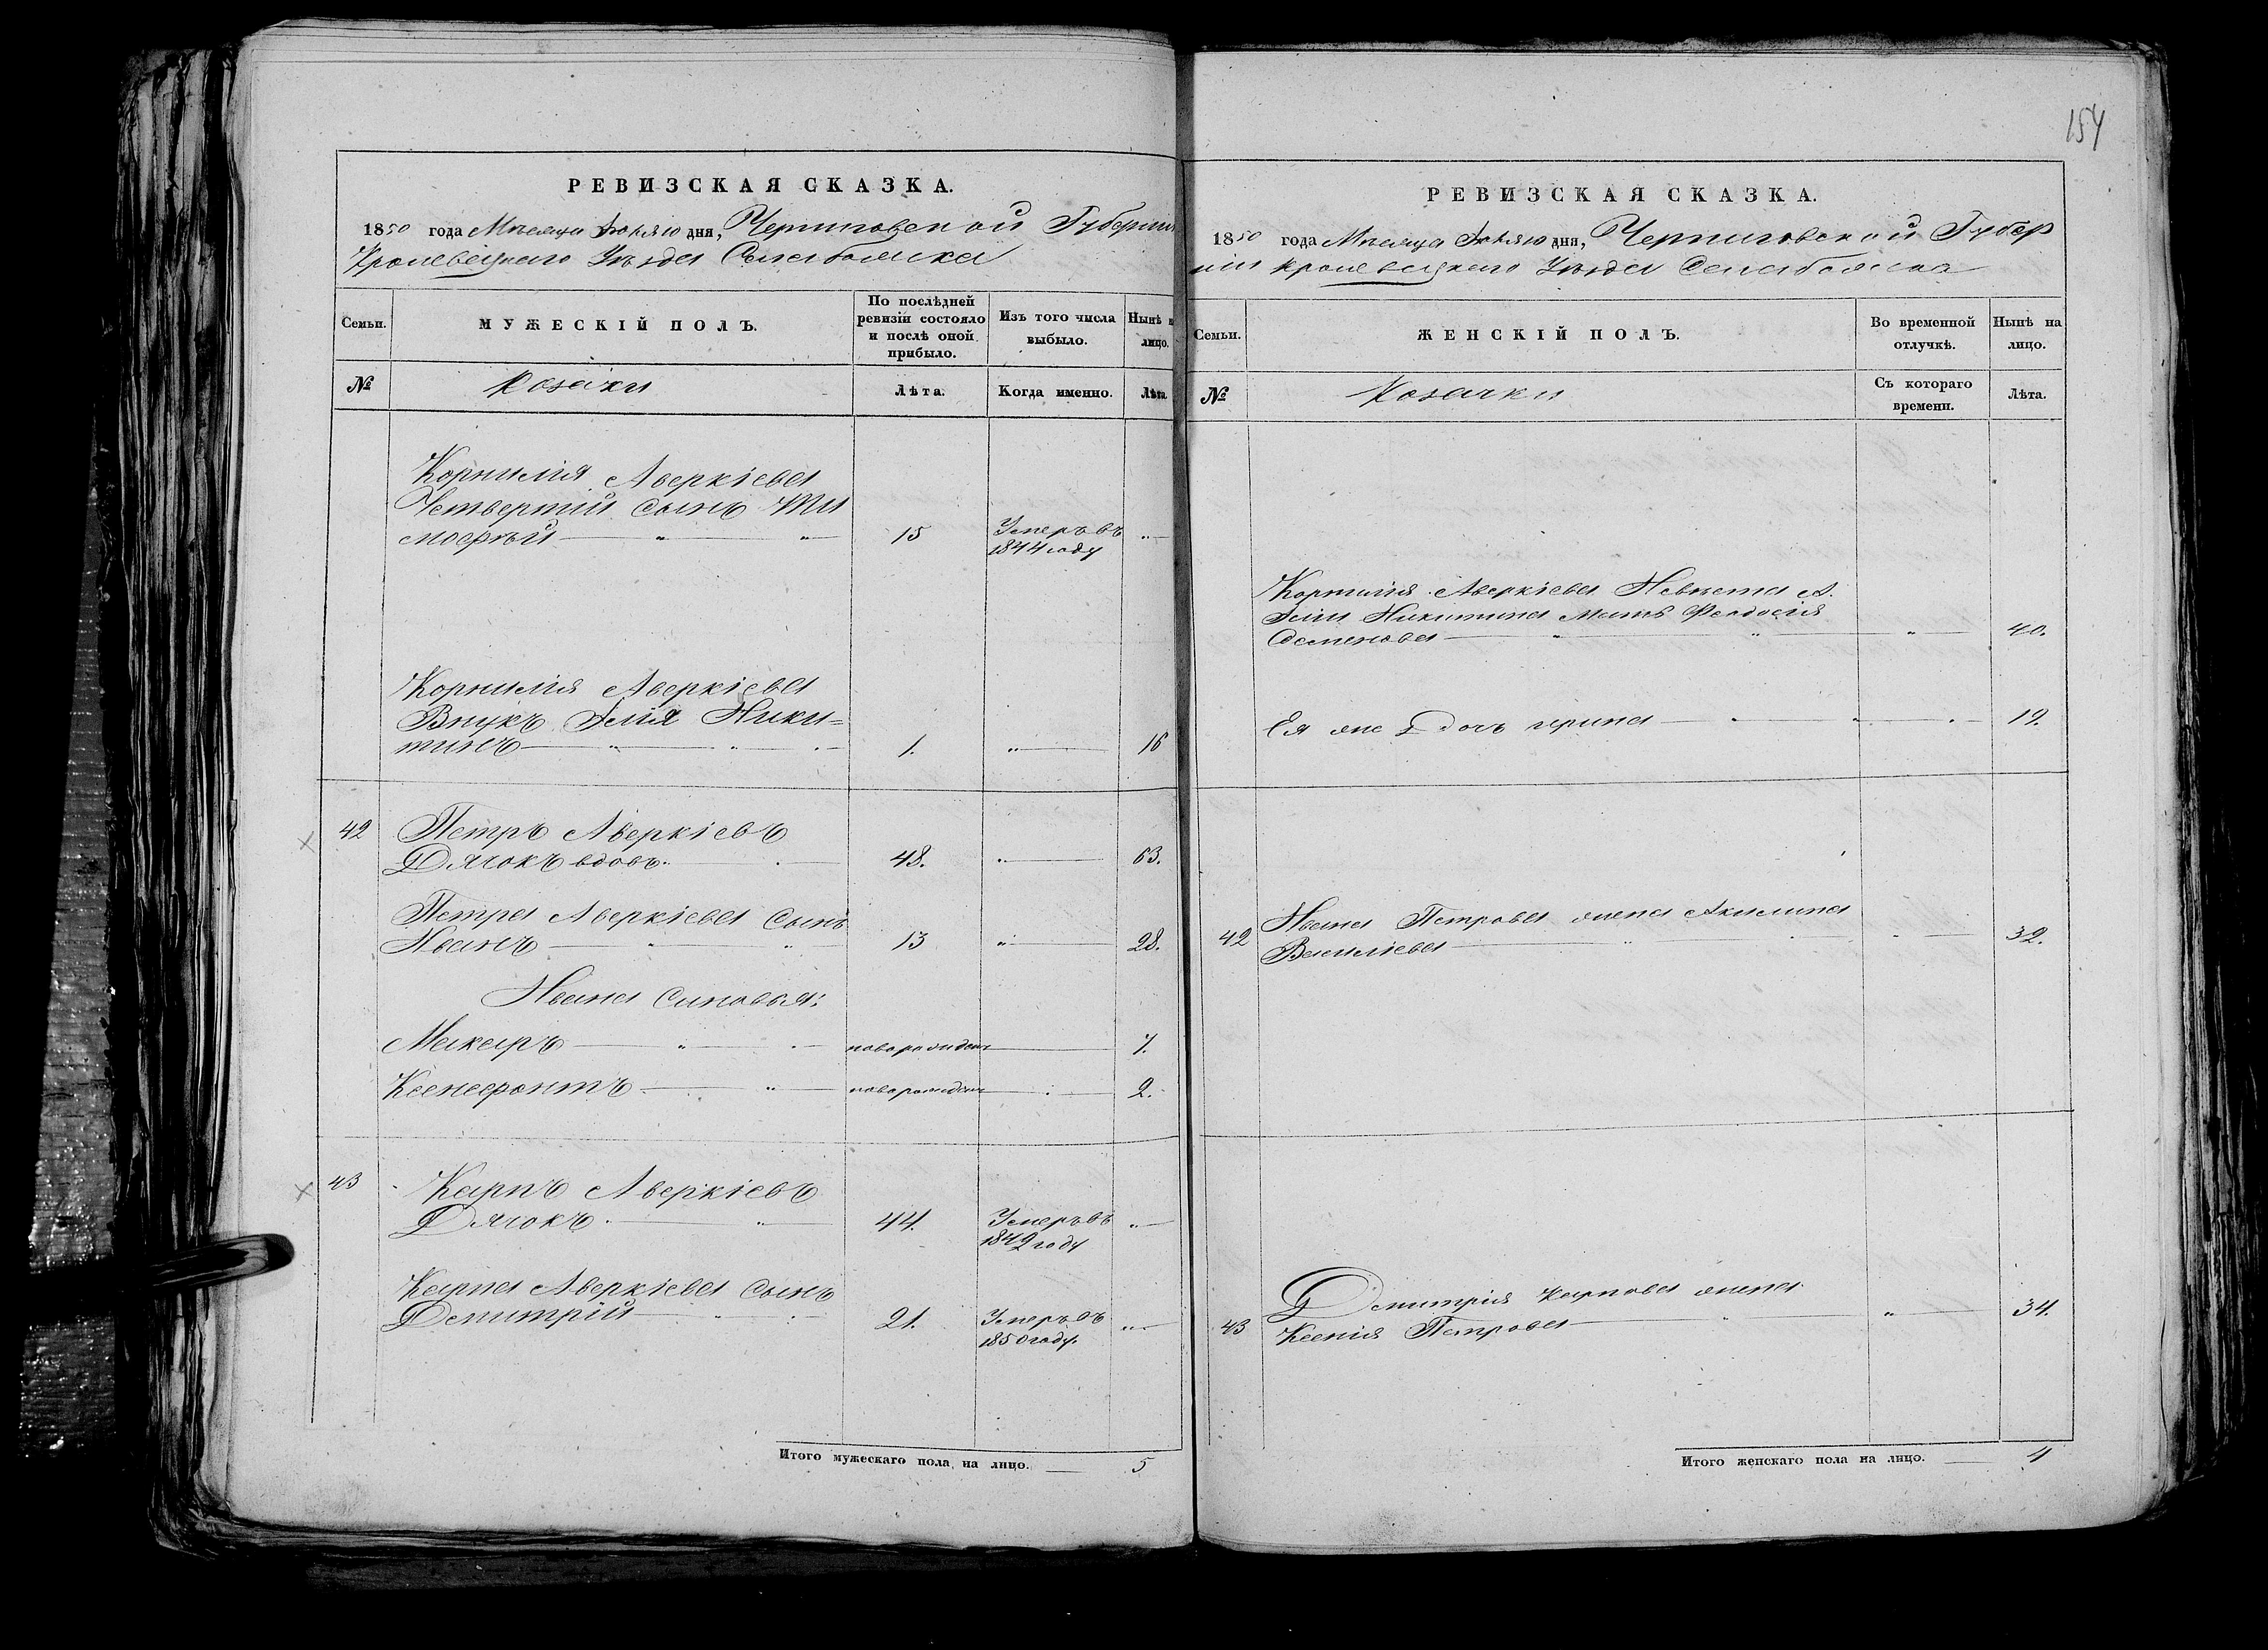 154
РЕВИЗСКАЯ СКАЗКА.
1850 года Месяца Іюля 10 дня, Черниговской Губерніи
Кролевецкаго Уѣзда
Семьи.
МУЖЕСКІЙ ПОЛЪ.
По послѣдней ревизіи состояло и послѣ оной прибыло.
Изъ того числа выбыло.
Нынѣ на лицо.
№
Козаки
Лѣта.
Когда именно.
Лѣта
Корнилія Аверкіева
Четвертій Сынъ Ти
мофѣй 15 Умеръ въ
1844 году
Корнилія Аверкіева
Внукъ Илія Ники=
тинъ 1. 16
42 Петръ Аверкіевъ
Дячокъ вдовъ. 48. 63.
Петра Аверкіева Сынъ
Иванъ 13 28.
Ивана Синовья:
Макаръ новорожден 7.
Ксенофонтъ новорожден 2.
43 Карпъ Аверкіевъ
Дячокъ. 44. Умеръ въ
1849 году
Карпа Аверкіева Сынъ
Демитрій 21. Умеръ въ
1850 году.
Итого мужескаго пола на лицо. 5
РЕВИЗСКАЯ СКАЗКА.
1850 года Месяца Іюля 10 дня, Черниговской Губер
ніи Кролевецкаго Уѣзда
Семьи.
ЖЕНСКІЙ ПОЛЪ.
Во временной отлучкѣ.
Нынѣ на лицо.
№
Козачки
Съ котораго времени.
Лѣта.
Корнилія Аверкіева Невѣста А.
Иліи Никитина Мать Феодосія
Семенова 40.
Ея же дочь Ирина 19.
42 Ивана Петрова жена Акилина
Василіева 32.
Демитрія Карпова жена
43 Ксенія Петрова 34.
Итого женскаго пола на лицо. 4